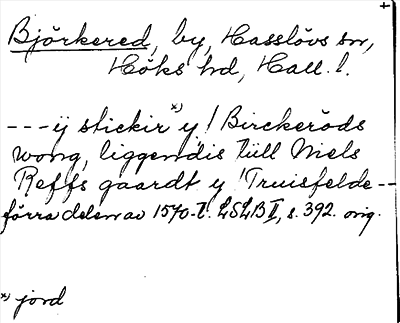 +
Björkered, by, Hasslövs sn,
Höks hd, Hall. l.
---ÿ stickir x) y! Birckerøds
wong, liggendis tüll Niels
Reffs gaardt y !Truisfelde--
förra delen av 1570-t. LSLB II, s. 392. orig.
x) jord